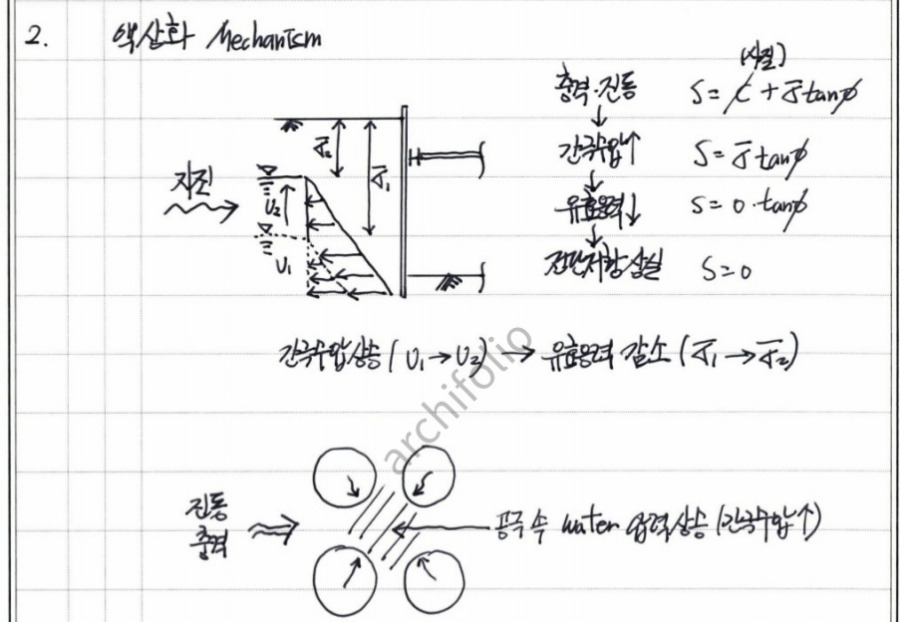 2. 액상화 Mechanism
(사질)
충격·진동 S = C + σ̄ tanφ
간극수압↑ S = σ̄ tanφ
유효응력↓ S = 0·tanφ
전단저항상실 S = 0
지진
σ̄₂
σ̄₁
U₂
U₁
간극수압상승 (U₁→U₂) → 유효응력 감소 (σ̄₁→σ̄₂)
archifolio
진동
충격
공극 속 water 압력상승 (간극수압↑)